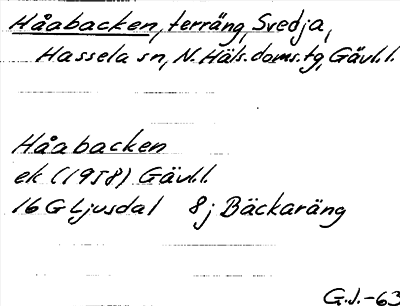 Håabacken, terräng, Svedja,
Hassela sn, N. Häls. doms. tg, Gävl. l.
Håabacken
ek (1958) Gävl. l.
16 G Ljusdal 8 j Bäckaräng
G.J.-63